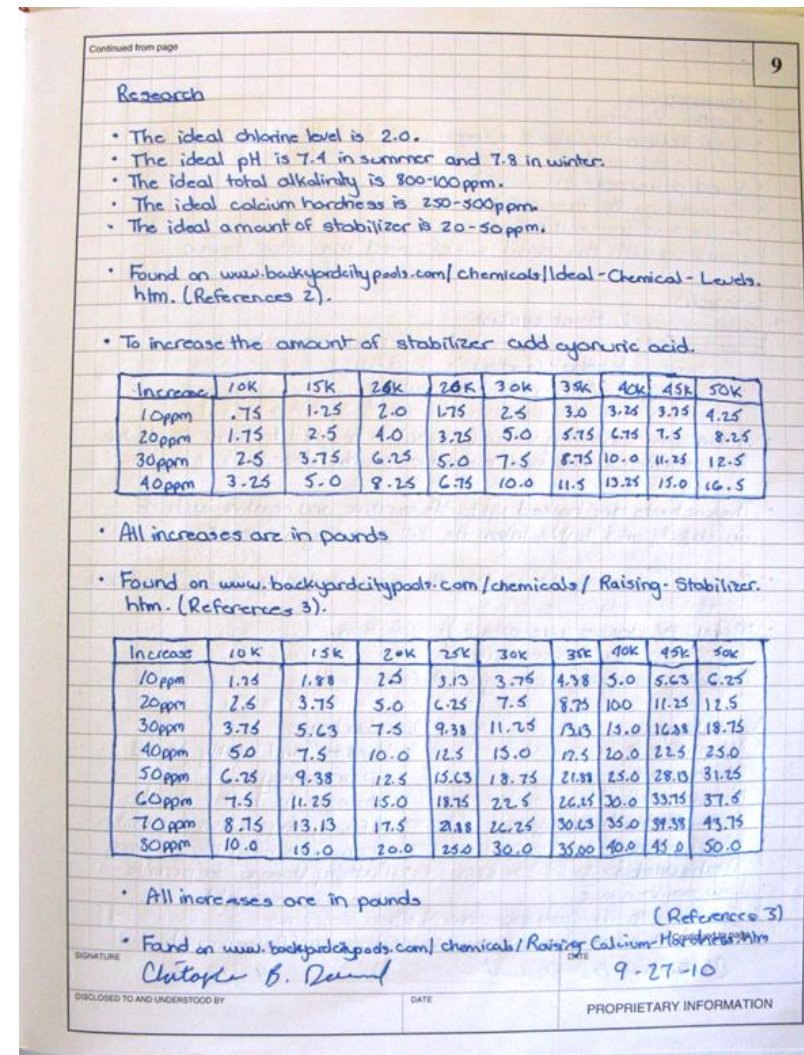 Continued from page
9
Research
• The ideal chlorine level is 2.0.
• The ideal pH is 7.4 in summer and 7.8 in winter.
• The ideal total alkalinity is 800-100ppm.
• The ideal calcium hardness is 250-500ppm.
• The ideal amount of stabilizer is 20-50ppm.
• Found on www.backyardcitypools.com/chemicals/Ideal-Chemical-Levels.
htm. (References 2).
• To increase the amount of stabilizer add cyanuric acid.
Increase 10K 15K 20K 30K 35K 40K 45K 50K
10ppm .75 1.25 2.0 1.75 2.5 3.0 3.25 3.75 4.25
20ppm 1.75 2.5 4.0 3.25 5.0 5.75 6.75 7.5 8.25
30ppm 2.5 3.75 6.25 5.0 7.5 8.75 10.0 11.25 12.5
40ppm 3.25 5.0 8.25 6.75 10.0 11.5 13.25 15.0 16.5
• All increases are in pounds
• Found on www.backyardcitypools.com/chemicals/Raising-Stabilizer.
htm. (References 3).
Increase 10K 15K 20K 25K 30K 35K 40K 45K 50K
10ppm 1.25 1.88 2.5 3.13 3.75 4.38 5.0 5.63 6.25
20ppm 2.5 3.75 5.0 6.25 7.5 8.75 100 11.25 12.5
30ppm 3.75 5.63 7.5 9.38 11.25 13.13 15.0 16.88 18.75
40ppm 50 7.5 10.0 12.5 15.0 17.5 20.0 22.5 25.0
50ppm 6.25 9.38 12.5 15.63 18.75 21.88 25.0 28.13 31.25
60ppm 7.5 11.25 15.0 18.75 22.5 26.25 30.0 33.75 37.5
70ppm 8.75 13.13 17.5 21.88 26.25 30.63 35.0 39.38 43.75
80ppm 10.0 15.0 20.0 25.0 30.0 35.00 40.0 45.0 50.0
• All increases are in pounds
(References 3)
• Found on www.backyardcitypools.com/chemicals/Raising-Calcium-Hardness.htm
Continued to page
SIGNATURE
B.
DATE
9-27-10
DISCLOSED TO AND UNDERSTOOD BY
DATE
PROPRIETARY INFORMATION